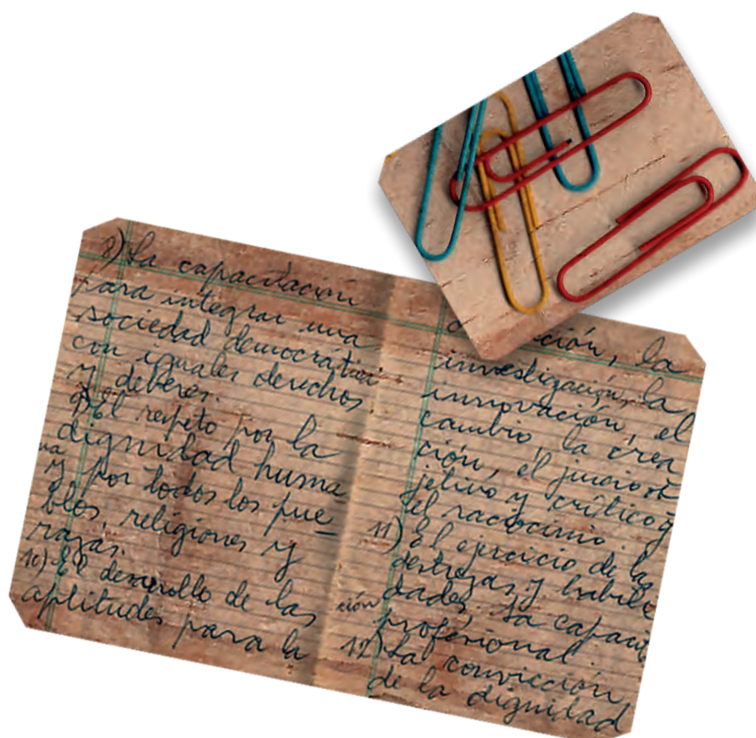 8) La capacitación
para integrar una
sociedad democratica
con iguales derechos
y deberes.
9) El respeto por la
dignidad huma
na
y por todos los pue
blos religiones y
razas.
10) El desarrollo de las
aptitudes para la
ción, la
investigación, la
innovación, el
cambio, la crea
ción, el juicio ob
jetivo y crítico y
el raciocinio.
11) El ejercicio de las
destrezas y habili
dades. La capaci
ción
profesional.
12) La convicción
de la dignidad